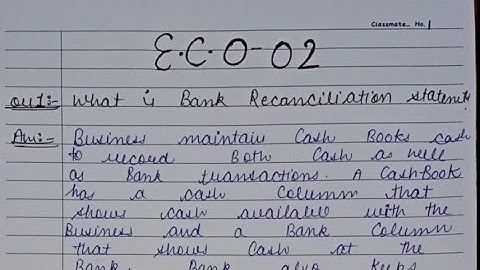 Classmate No. 1
E.C.O-02
Qu1:- What is Bank Reconciliation statement?
Ans:- Business maintain Cash Books cash
to record Both Cash as well
as Bank transactions. A Cash-Book
has a cash Column that
shows cash available with the
Business and a Bank Column
that shows Cash at the
Bank. Bank also keeps